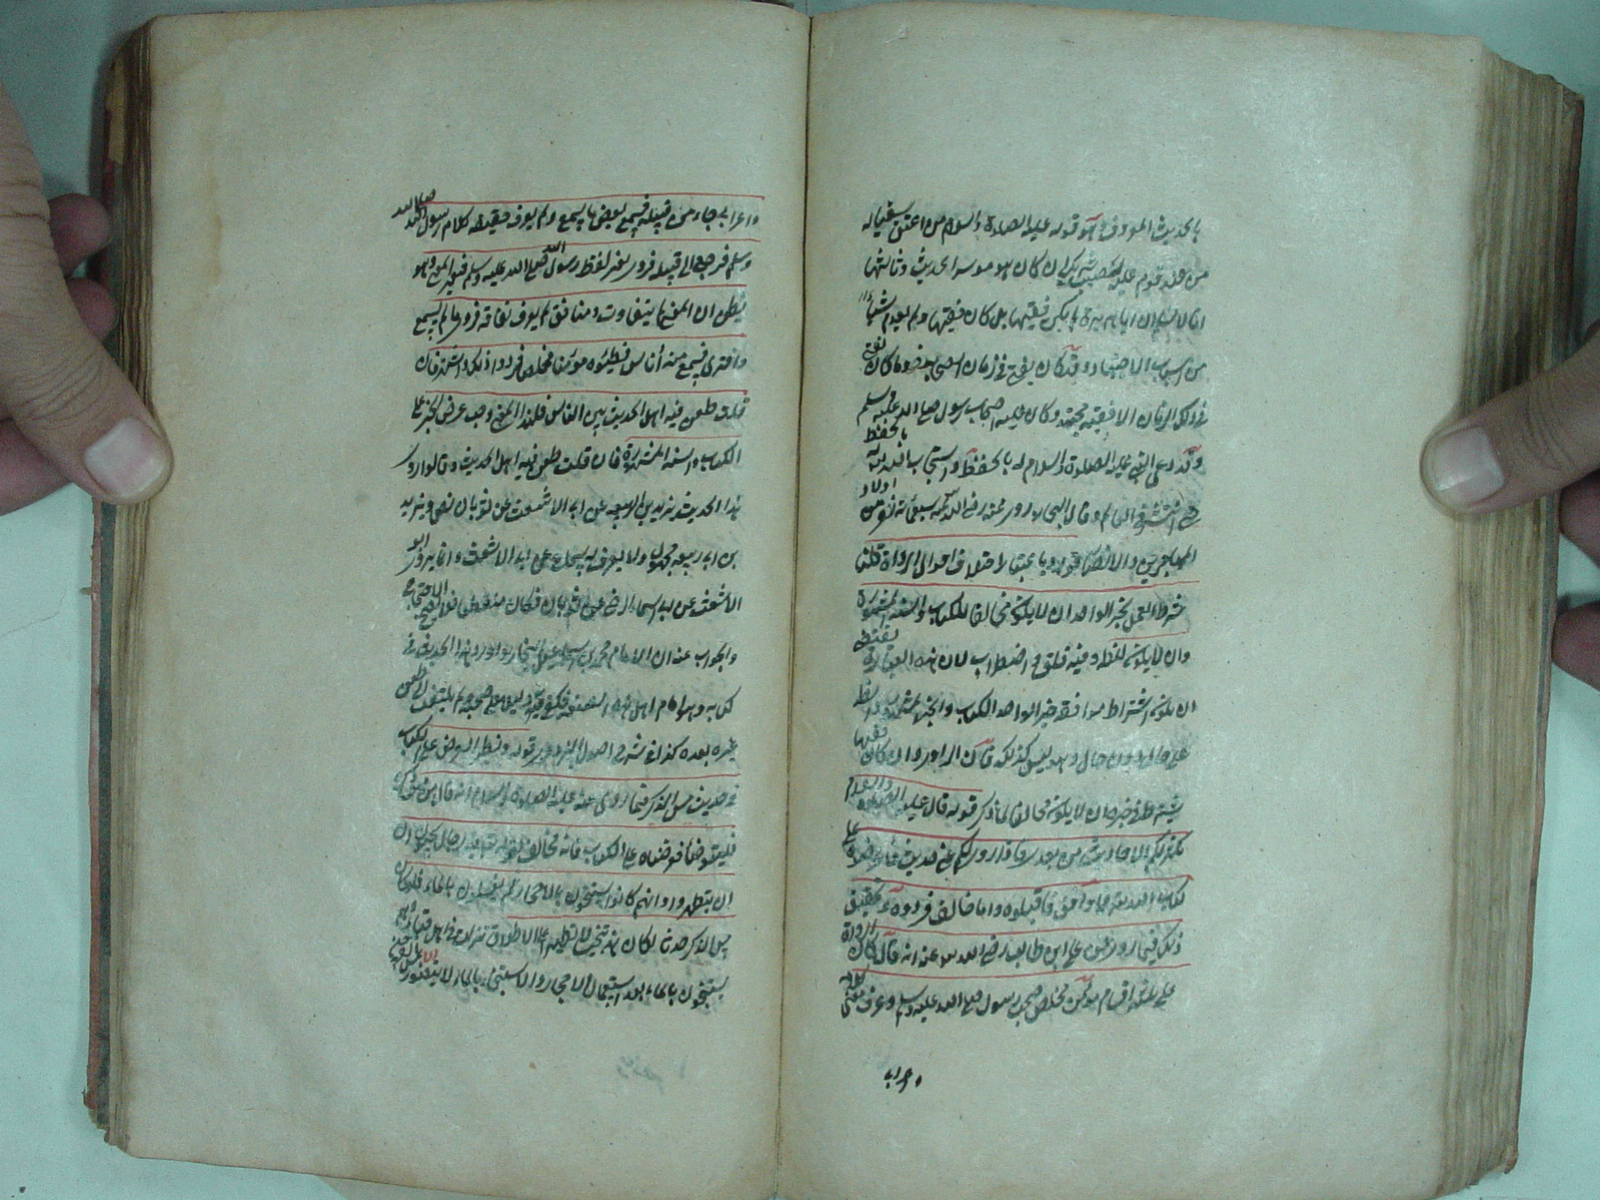 بالحديث المعروف وهو قوله عليه الصلاة والسلام من اعتق شقصا له
من عبد قوم عليه نصيب شريكه ان كان موسرا الحديث وثالثها
انا لا نسلم ان ابا هريرة لم يكن فقيها بل كان فقيها ولم يعدم شيئا
من اسباب الاجتهاد وقد كان يفتى فى زمان الصحابة وما كان يفتى
فى ذلك الزمان الا فقيه مجتهد وكان من علية اصحاب رسول الله صلى الله عليه وسلم
وقد دعى النبى عليه الصلوة والسلام له بالحفظ واستجاب الله له بالحفظ
حتى انتشر فى العالم وقال البخارى روى عنه سبعمائة نفر من اولاد
المهاجرين والانصار قوله وباعتبار اختلاف احوال الرواة قلنا
شرط العمل بخبر الواحد ان لا يكون مخالفا للكتاب والسنة المشهورة
وان لا يكون فى اضطراب لان هذه العبارة يقتضى
ان يكون اشتراط موافقة خبر الواحد الكتاب والخبر المشهور
على حال دون حال وهو ليس كذلك فان الراوى وان كان فقيها
يشترط فى خبره ان لا يكون مخالفا لما ذكر قوله قال عليه الصلاة والسلام
تكثر لكم الاحاديث من بعدى فاذا روى لكم عنى حديث فاعرضوه على
كتاب الله تعالى فما وافق فاقبلوه وما خالف فردوه وتحقيق
ذلك فيما روى عن على ابن ابى طالب رضى الله عنه انه قال كان الرواة
على ثلثة اقسام مؤمن مخلص صحب رسول الله صلى الله عليه وسلم وعرف معنى كلامه
واعرابى
واعرابى جاء من قبيلة فسمع بعض ما سمع ولم يعرف حقيقة كلام رسول الله صلى الله
وسلم فرجع الى قبيلته فروى بغير لفظ رسول الله صلى الله عليه وسلم فتغير المعنى وهو
يظن ان المعنى لا يتفاوت ومنافق لم يعرف نفاقه فروى ما لم يسمع
وافترى فسمع منه اناس فظنوه مؤمنا مخلصا فرووا ذلك واشتهر فان
قلت طعن فيه اهل الحديث بين الناس فلهذا المعنى وجب عرض الخبر على
الكتاب والسنة المشهورة فان قلت طعن فيه اهل الحديث وقالوا روى
هذا الحديث يزيد بن ربيعة عن ابى الاشعث عن ثوبان ويزيد
بن ربيعة مجهول ولا يعرف له سماع عن ابى الاشعث وانما يروى ابو
الاشعث عن ابى اسماء الرحبى عن ثوبان فكان منقطعا فلا يصح الاحتجاج
والجواب عنه ان الامام محمد بن اسمعيل البخارى اورد هذا الحديث فى
كتابه وهو امام اهل هذه الصنعة فكفى به دليلا على صحته ولم يلتفت الى طعن
غيره بعده كذا فى شرح اصول البزدوى قوله ونظير العرض على الكتاب
فى حديث مس الذكر فيما روى عنه عليه الصلاة والسلام انه قال من مس ذكره
فليتوضأ فعرضناه على الكتاب فانه مخالف لقوله تعالى فيه رجال يحبون ان
ان يتطهروا وانهم كانوا يستنجون بالاحجار ثم يغسلون بالماء فلو كان
مس الذكر حدثا لكان هذا تنجيسا لا تطهيرا على الاطلاق نزلت فى اهل قباء
يستنجون بالماء بعد استعمال الاحجار والاستنجاء بالماء لا يتصور الا